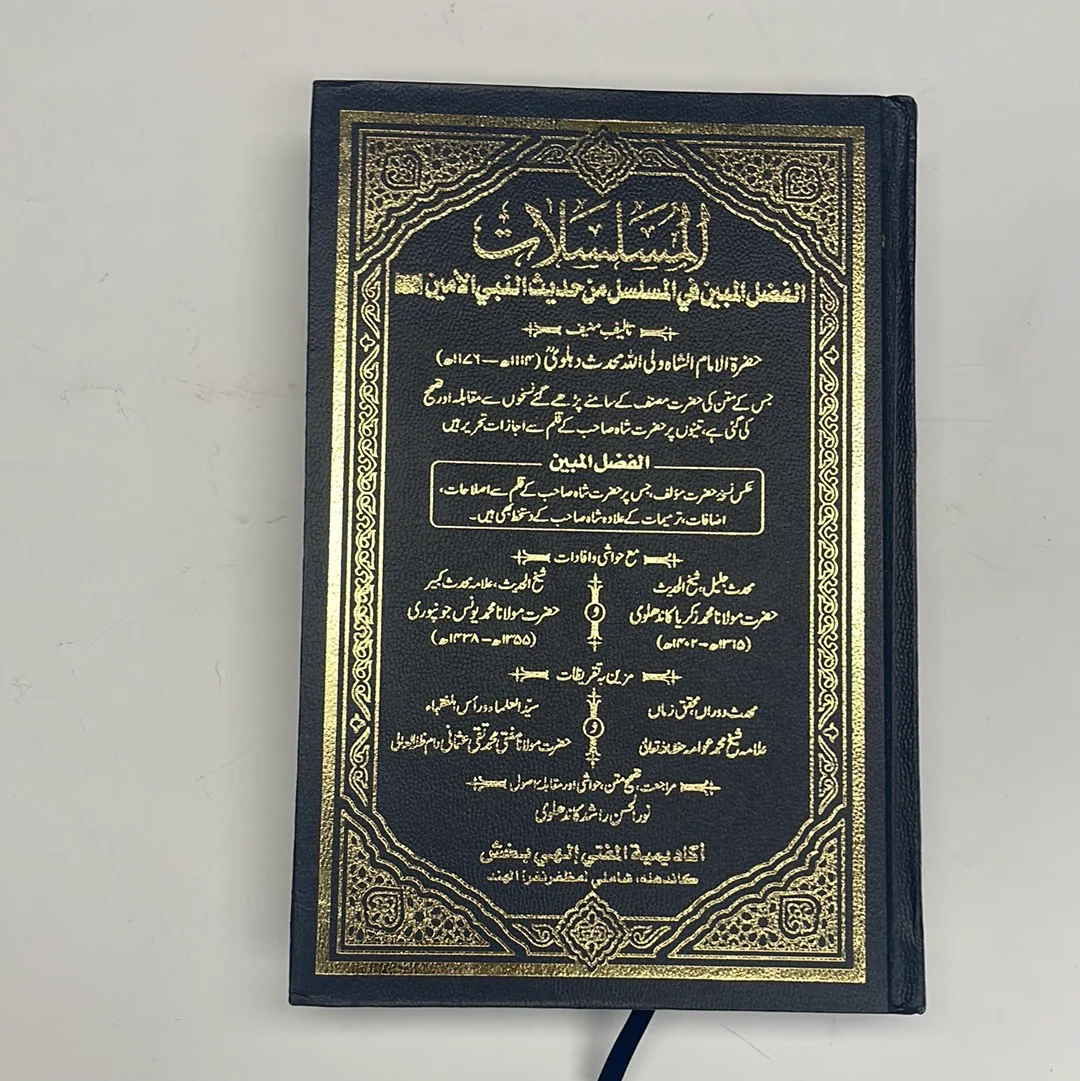 المسلسلات
الفضل المبين في المسلسل من حديث النبي الأمين ﷺ
تالیف منیف
حضرة الامام الشاه ولی الله محدث دہلویؒ (۱۱۱۴ھ — ۱۱۷۶ھ)
جس کے متن کی حضرت مصنف کے سامنے پڑھے گئے نسخوں سے مقابلہ اور تصحیح
کی گئی ہے، تینوں پر حضرت شاہ صاحب کے قلم سے اجازات تحریر ہیں
الفضل المبين
عکس نسخہ حضرت مؤلف، جس پر حضرت شاہ صاحب کے قلم سے اصلاحات،
اضافات، ترمیمات کے علاوہ شاہ صاحب کے دستخط بھی ہیں۔
مع حواشی و افادات
محدث جلیل، شیخ الحدیث
حضرت مولانا محمد زکریا کاندھلوی
(۱۳۱۵ھ – ۱۴۰۲ھ)
و
شیخ الحدیث، علامہ محدث کبیر
حضرت مولانا محمد یونس جونپوری
(۱۳۵۵ھ – ۱۴۳۸ھ)
مزین بہ تقریظات
محدث دوراں، محقق زماں
علامہ شیخ محمد عوامہ حفظہ اللہ تعالیٰ
و
سیّد العلماء و رأس الفقہاء
حضرت مولانا مفتی محمد تقی عثمانی دام ظلہ العالی
مراجعت، تصحیح متن، حواشی اور مقابلہ اصول
نور الحسن راشد کاندھلوی
أكاديمية المفتي إلهي بخش
كاندهله، شاملي (مظفر نغر) الهند